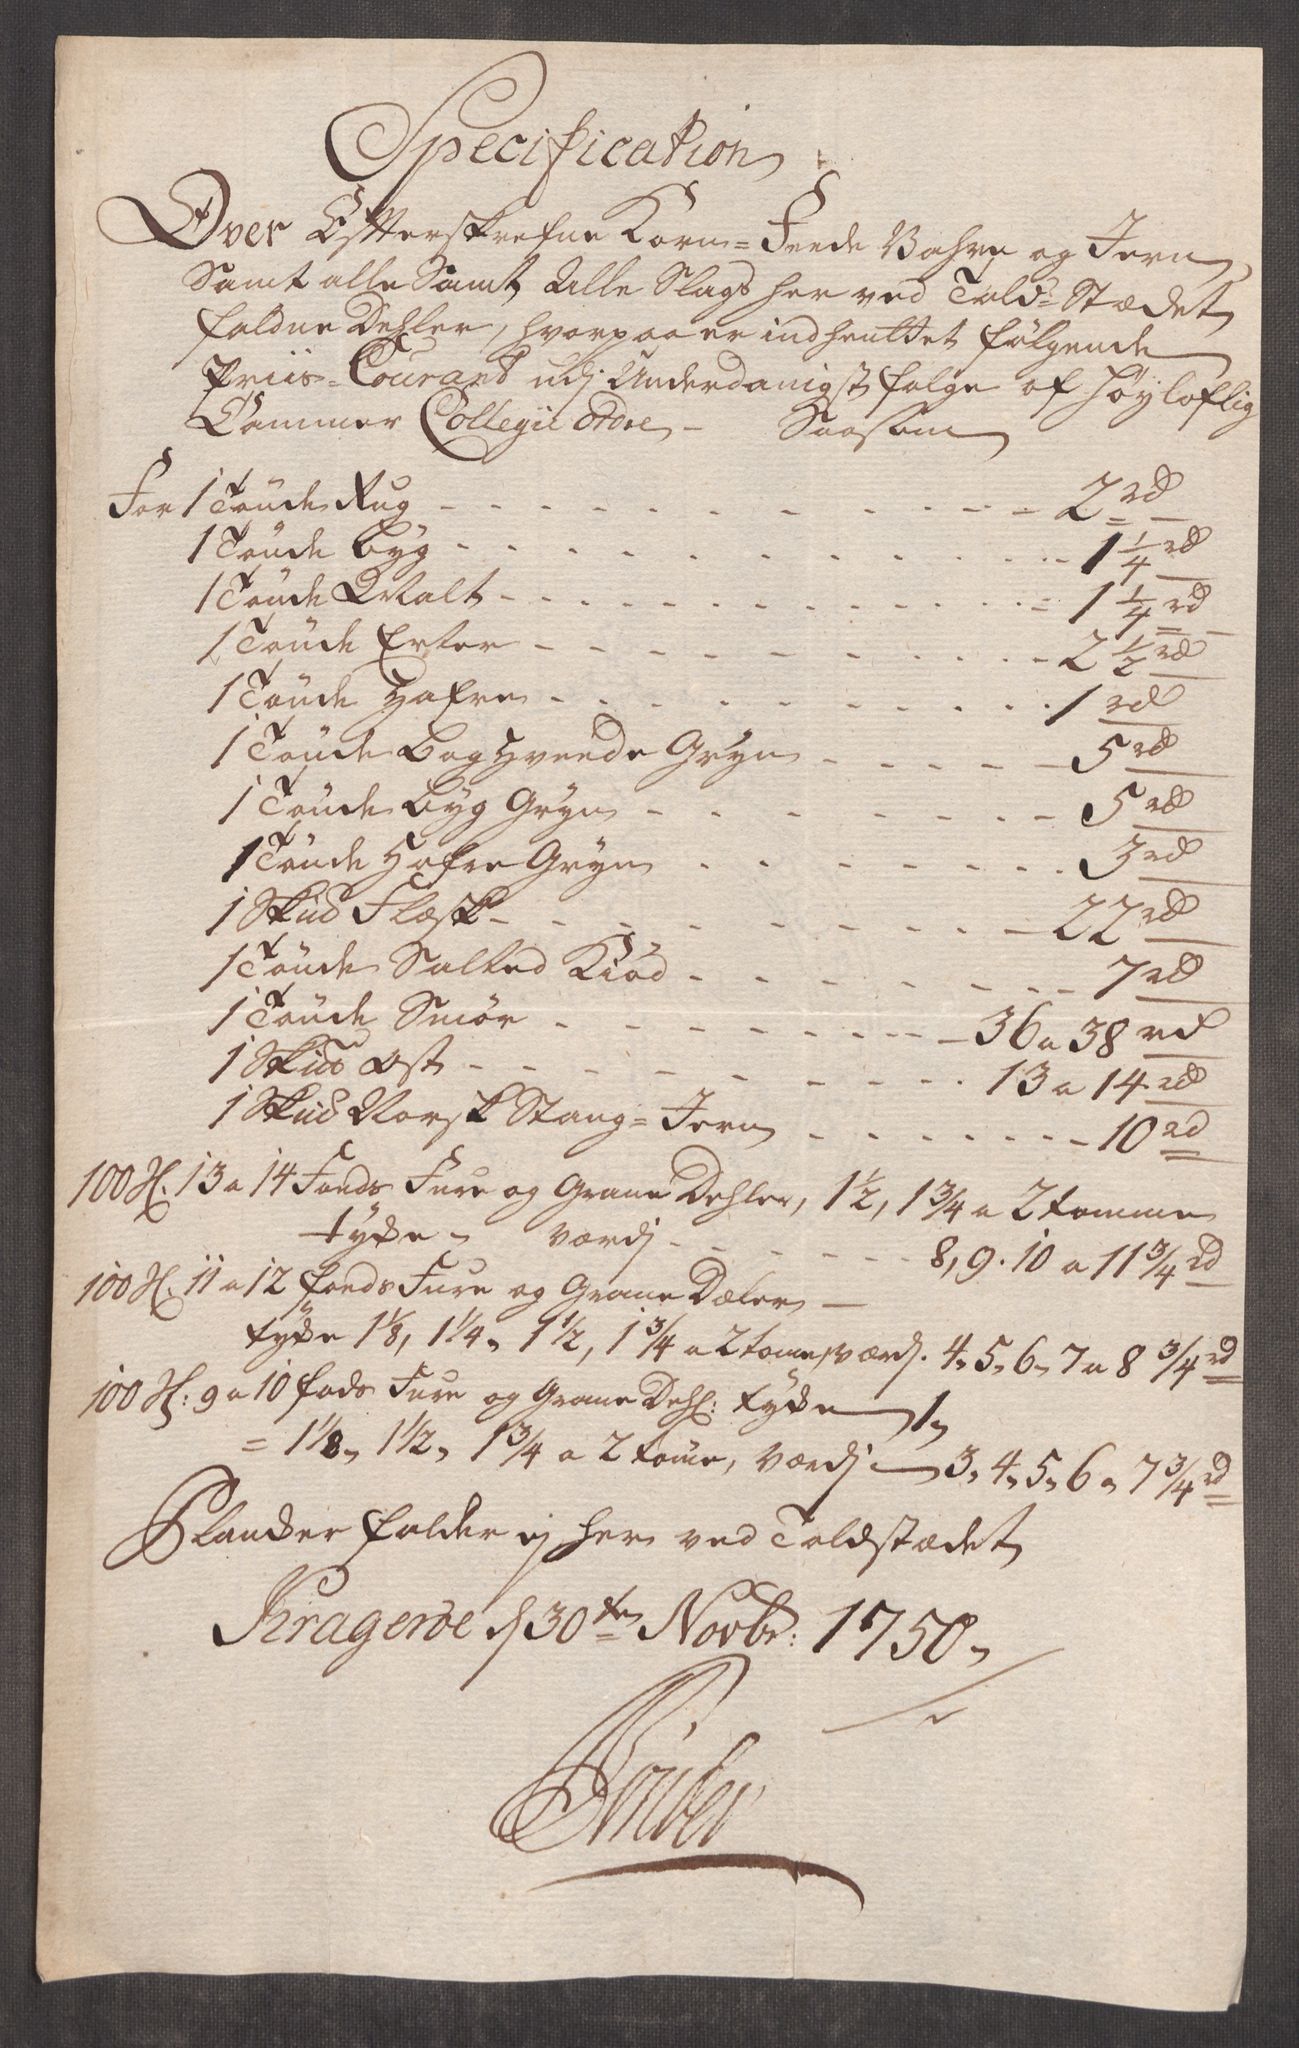 Specification
Over Efterskrefne Korn = Feede Vahre og Jern
Samt alle Samt Alle Slags her ved Told-Stædet
faldne Dehler, hvorpaa er indhentet følgende
Priis-Courant udj Underdanigst følge af Høyloflig
Cammer Collegii Ordre - Saasom
For 1 Tønde Rug - - - 2 rd
1 Tønde Byg - - - 1 1/4 rd
1 Tønde Malt - - - 1 1/4 rd
1 Tønde Erter - - - 2 1/2 rd
1 Tønde Hafre - - - 1 rd
1 Tønde Boghveede Gryn - - - 5 rd
1 Tønde Byg Gryn - - - 5 rd
1 Tønde Hafre Gryn - - - 3 rd
1 Skud Flæsk - - - 22 rd
1 Tønde Salted Kiød - - - 7 rd
1 Tønde Smør - - - 36 a 38 rd
1 Skud Ost - - - 13 a 14 rd
1 Skud Norsk Stang = Jern - - - 10 rd
100 st. 13 a 14 Foeds Fure og Grane Dehler, 1 1/2, 1 3/4 a 2 tomme
tykke, værdj - - - 8, 9. 10 a 11 3/4 rd
100 st. 11 a 12 foeds Fure og Grane Dæler
tykke 1 1/8, 1 1/4, 1 1/2, 1 3/4 a 2 tome, værdj. 4, 5, 6, 7 a 8 3/4 rd
100 st: 9 a 10 fods Fure og Grane Dehl: tykke 1,
= 1 1/8, 1 1/2, 1 3/4 a 2 tome, værdj 3, 4, 5, 6 a 7 3/4 rd
Planker falder ej her ved Toldstædet
Krageröe d 30ten Novbr: 1750,